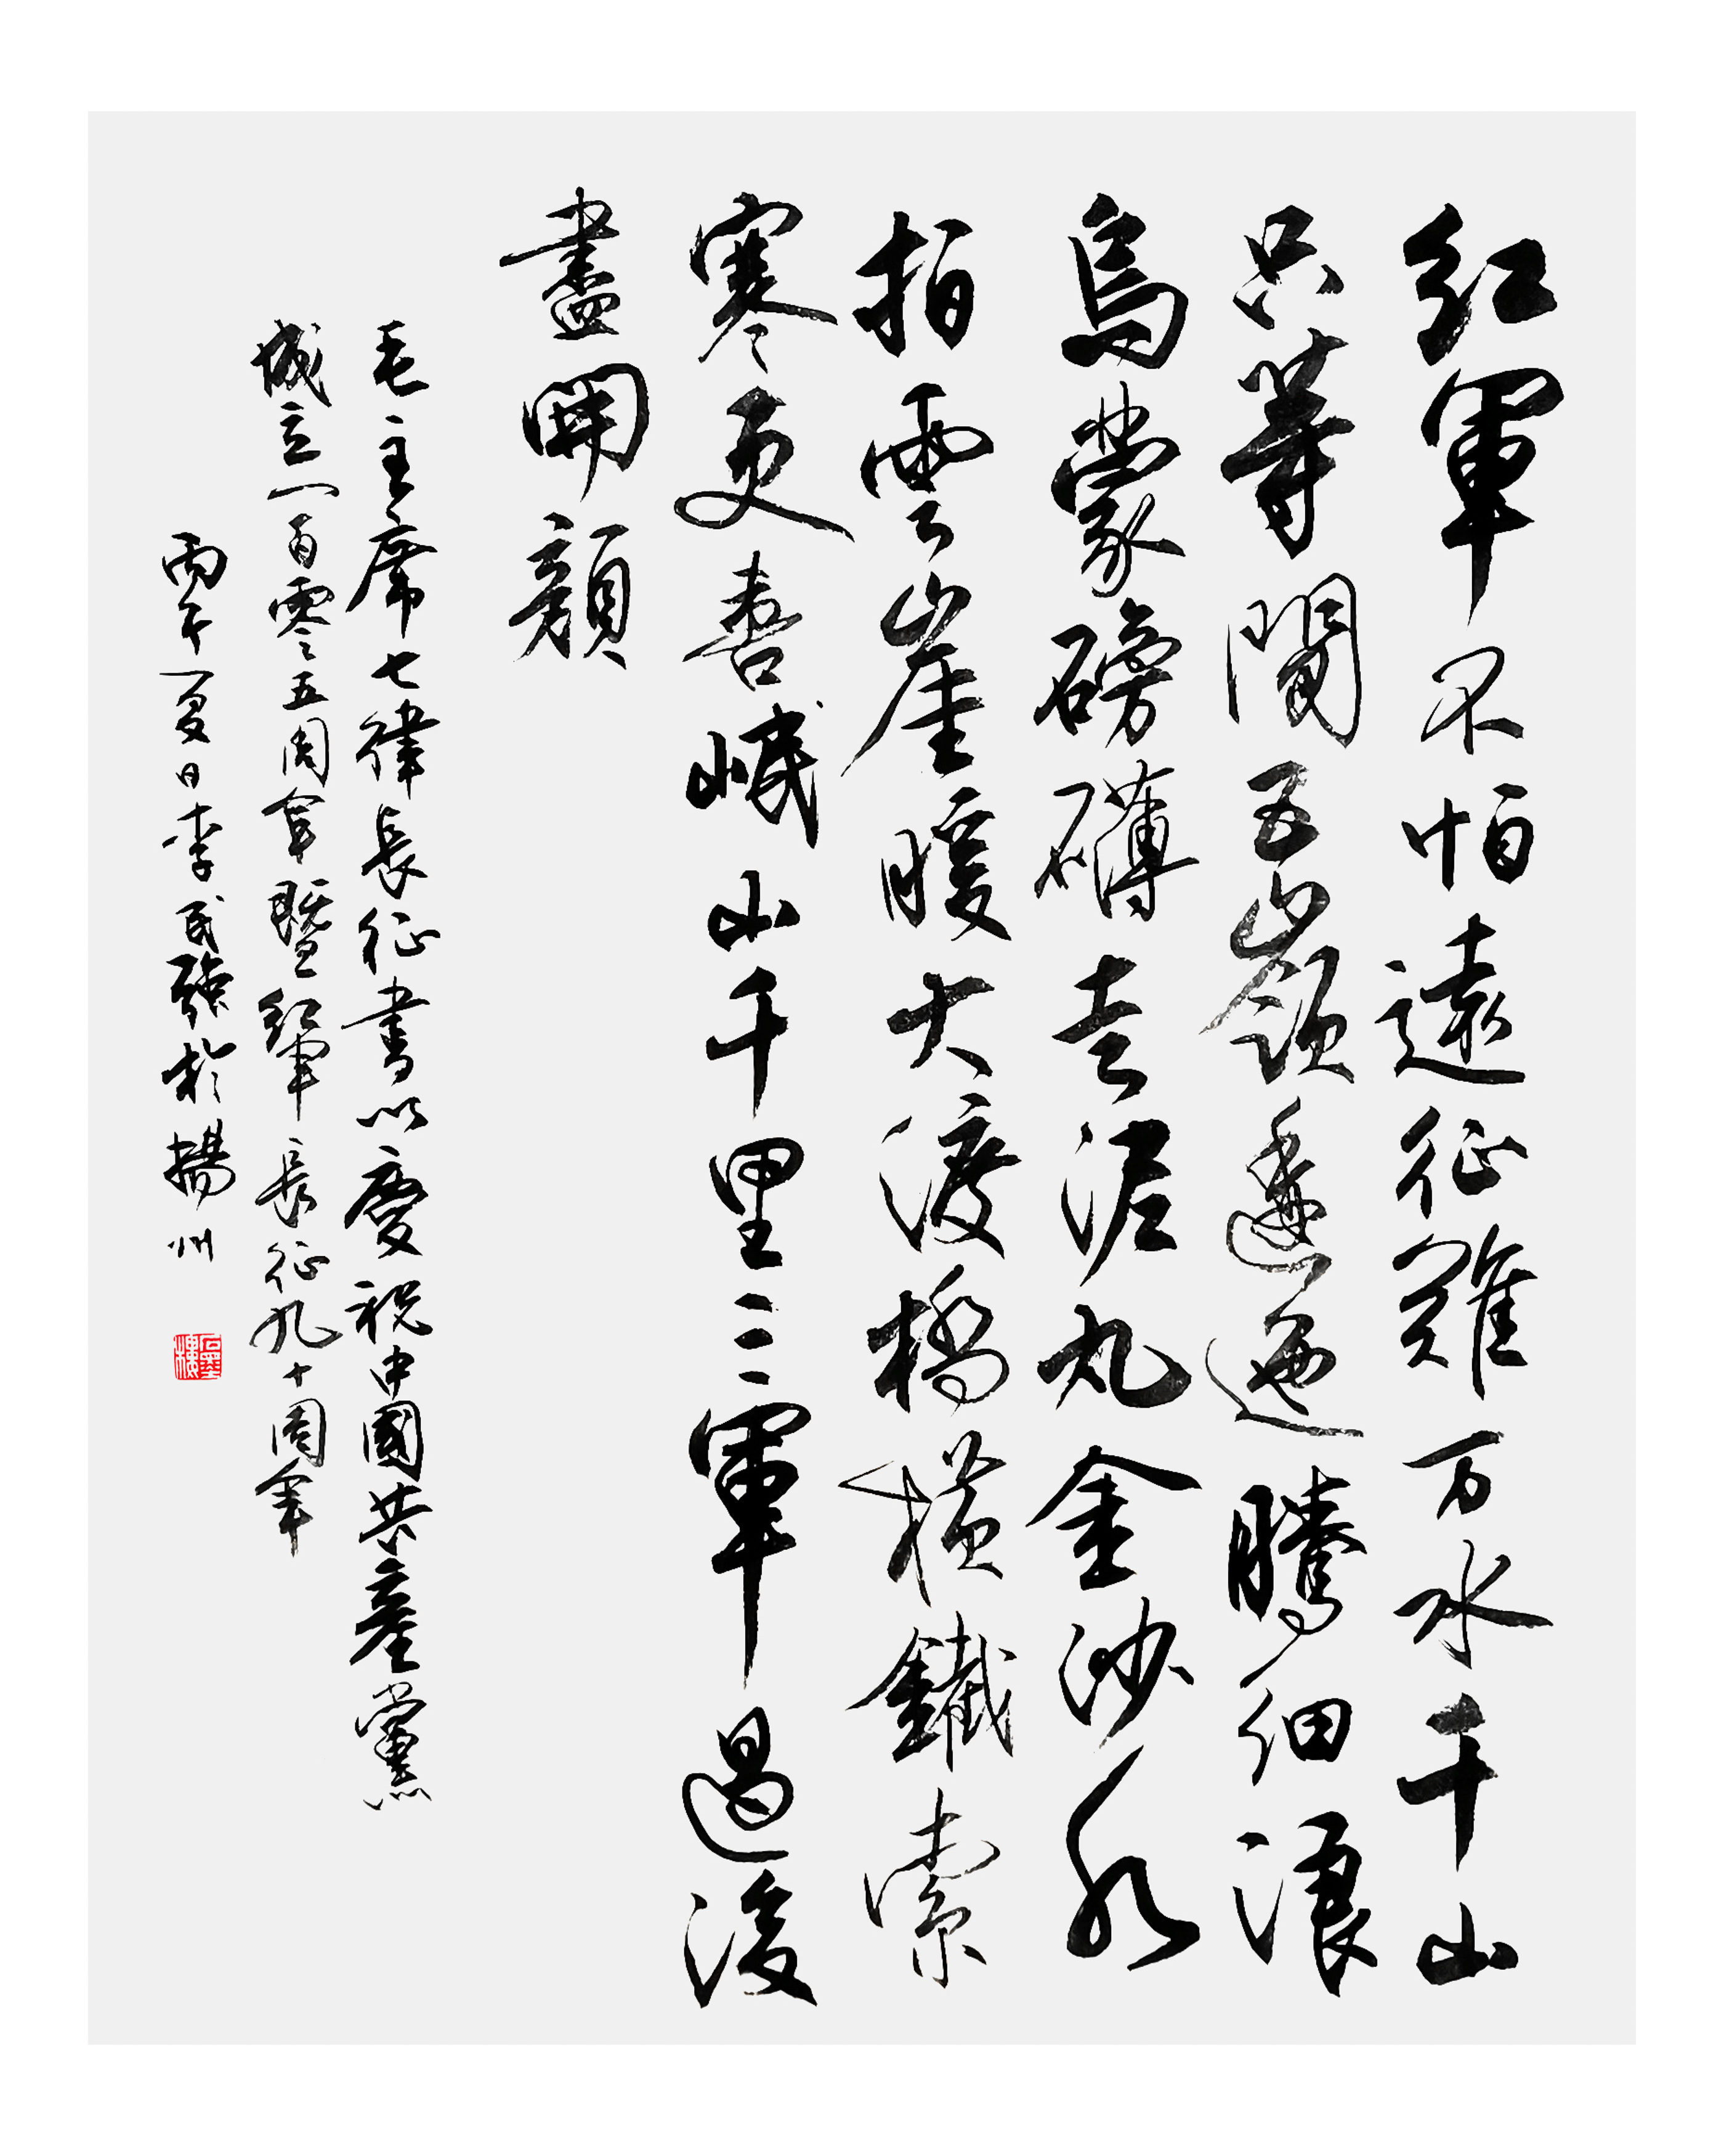 紅軍不怕遠征難万水千山
只等閒五嶺逶迤騰細浪
烏蒙磅礴走泥丸金沙水
拍雲崖暖大渡橋橫鐵索
寒更喜岷山千里三軍過後
盡開顏
毛主席七律長征書以慶祝中國共產黨
成立一百零五周年暨紅軍長征九十周年
丙午夏日李民強於揚州